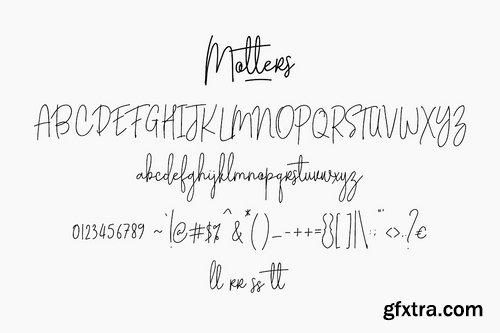 Motters
ABCDEFGHIJKLMNOPQRSTUVWXYZ
abcdefghijklmnopqrstuvwxyz
0123456789 ~`!@#$%^&*()_--++={}[]|\:;"'<>,.?€
ll rr ss tt
gfxtra.com